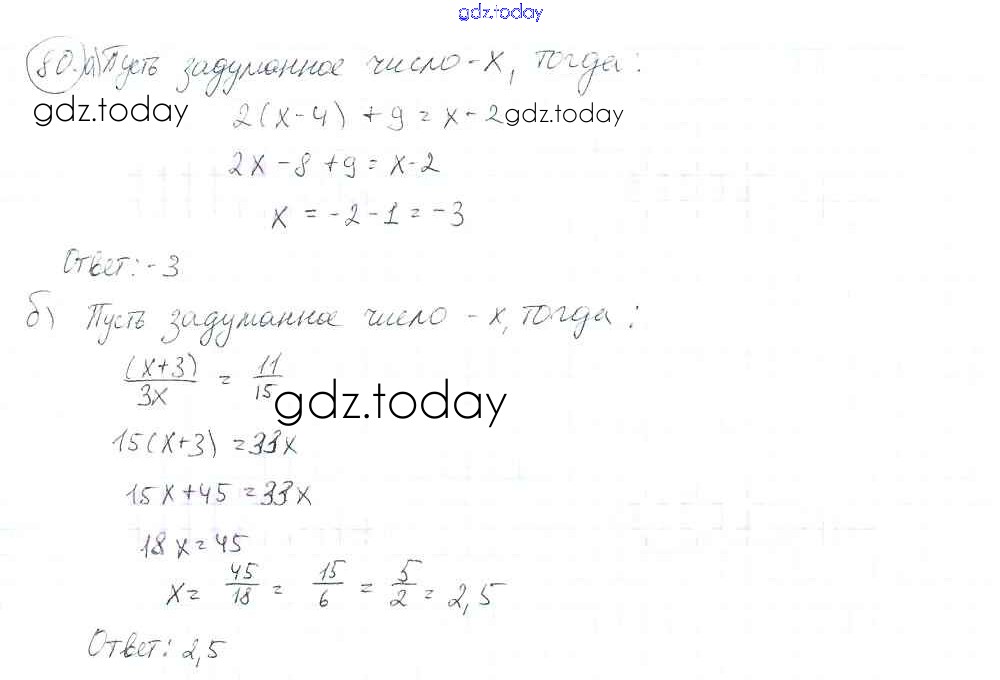 gdz.today
80. а) Пусть задуманное число - x, тогда:
gdz.today 2(x-4) + 9 = x - 2 gdz.today
2x - 8 + 9 = x - 2
x = -2 - 1 = -3
Ответ: -3
б) Пусть задуманное число - x, тогда:
(x+3)/3x = 11/15
gdz.today
15(x+3) = 33x
15x + 45 = 33x
18x = 45
x = 45/18 = 15/6 = 5/2 = 2,5
Ответ: 2,5